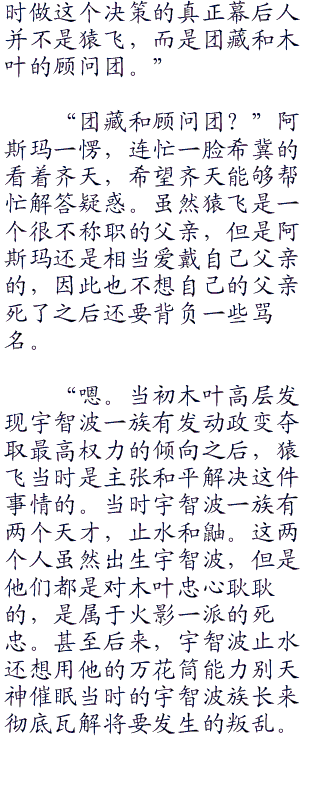 时做这个决策的真正幕后人
并不是猿飞，而是团藏和木
叶的顾问团。”
“团藏和顾问团？”阿
斯玛一愣，连忙一脸希冀的
看着齐天，希望齐天能够帮
忙解答疑惑。虽然猿飞是一
个很不称职的父亲，但是阿
斯玛还是相当爱戴自己父亲
的，因此也不想自己的父亲
死了之后还要背负一些骂
名。
“嗯。当初木叶高层发
现宇智波一族有发动政变夺
取最高权力的倾向之后，猿
飞当时是主张和平解决这件
事情的。当时宇智波一族有
两个天才，止水和鼬。这两
个人虽然出生宇智波，但是
他们都是对木叶忠心耿耿
的，是属于火影一派的死
忠。甚至后来，宇智波止水
还想用他的万花筒能力别天
神催眠当时的宇智波族长来
彻底瓦解将要发生的叛乱。